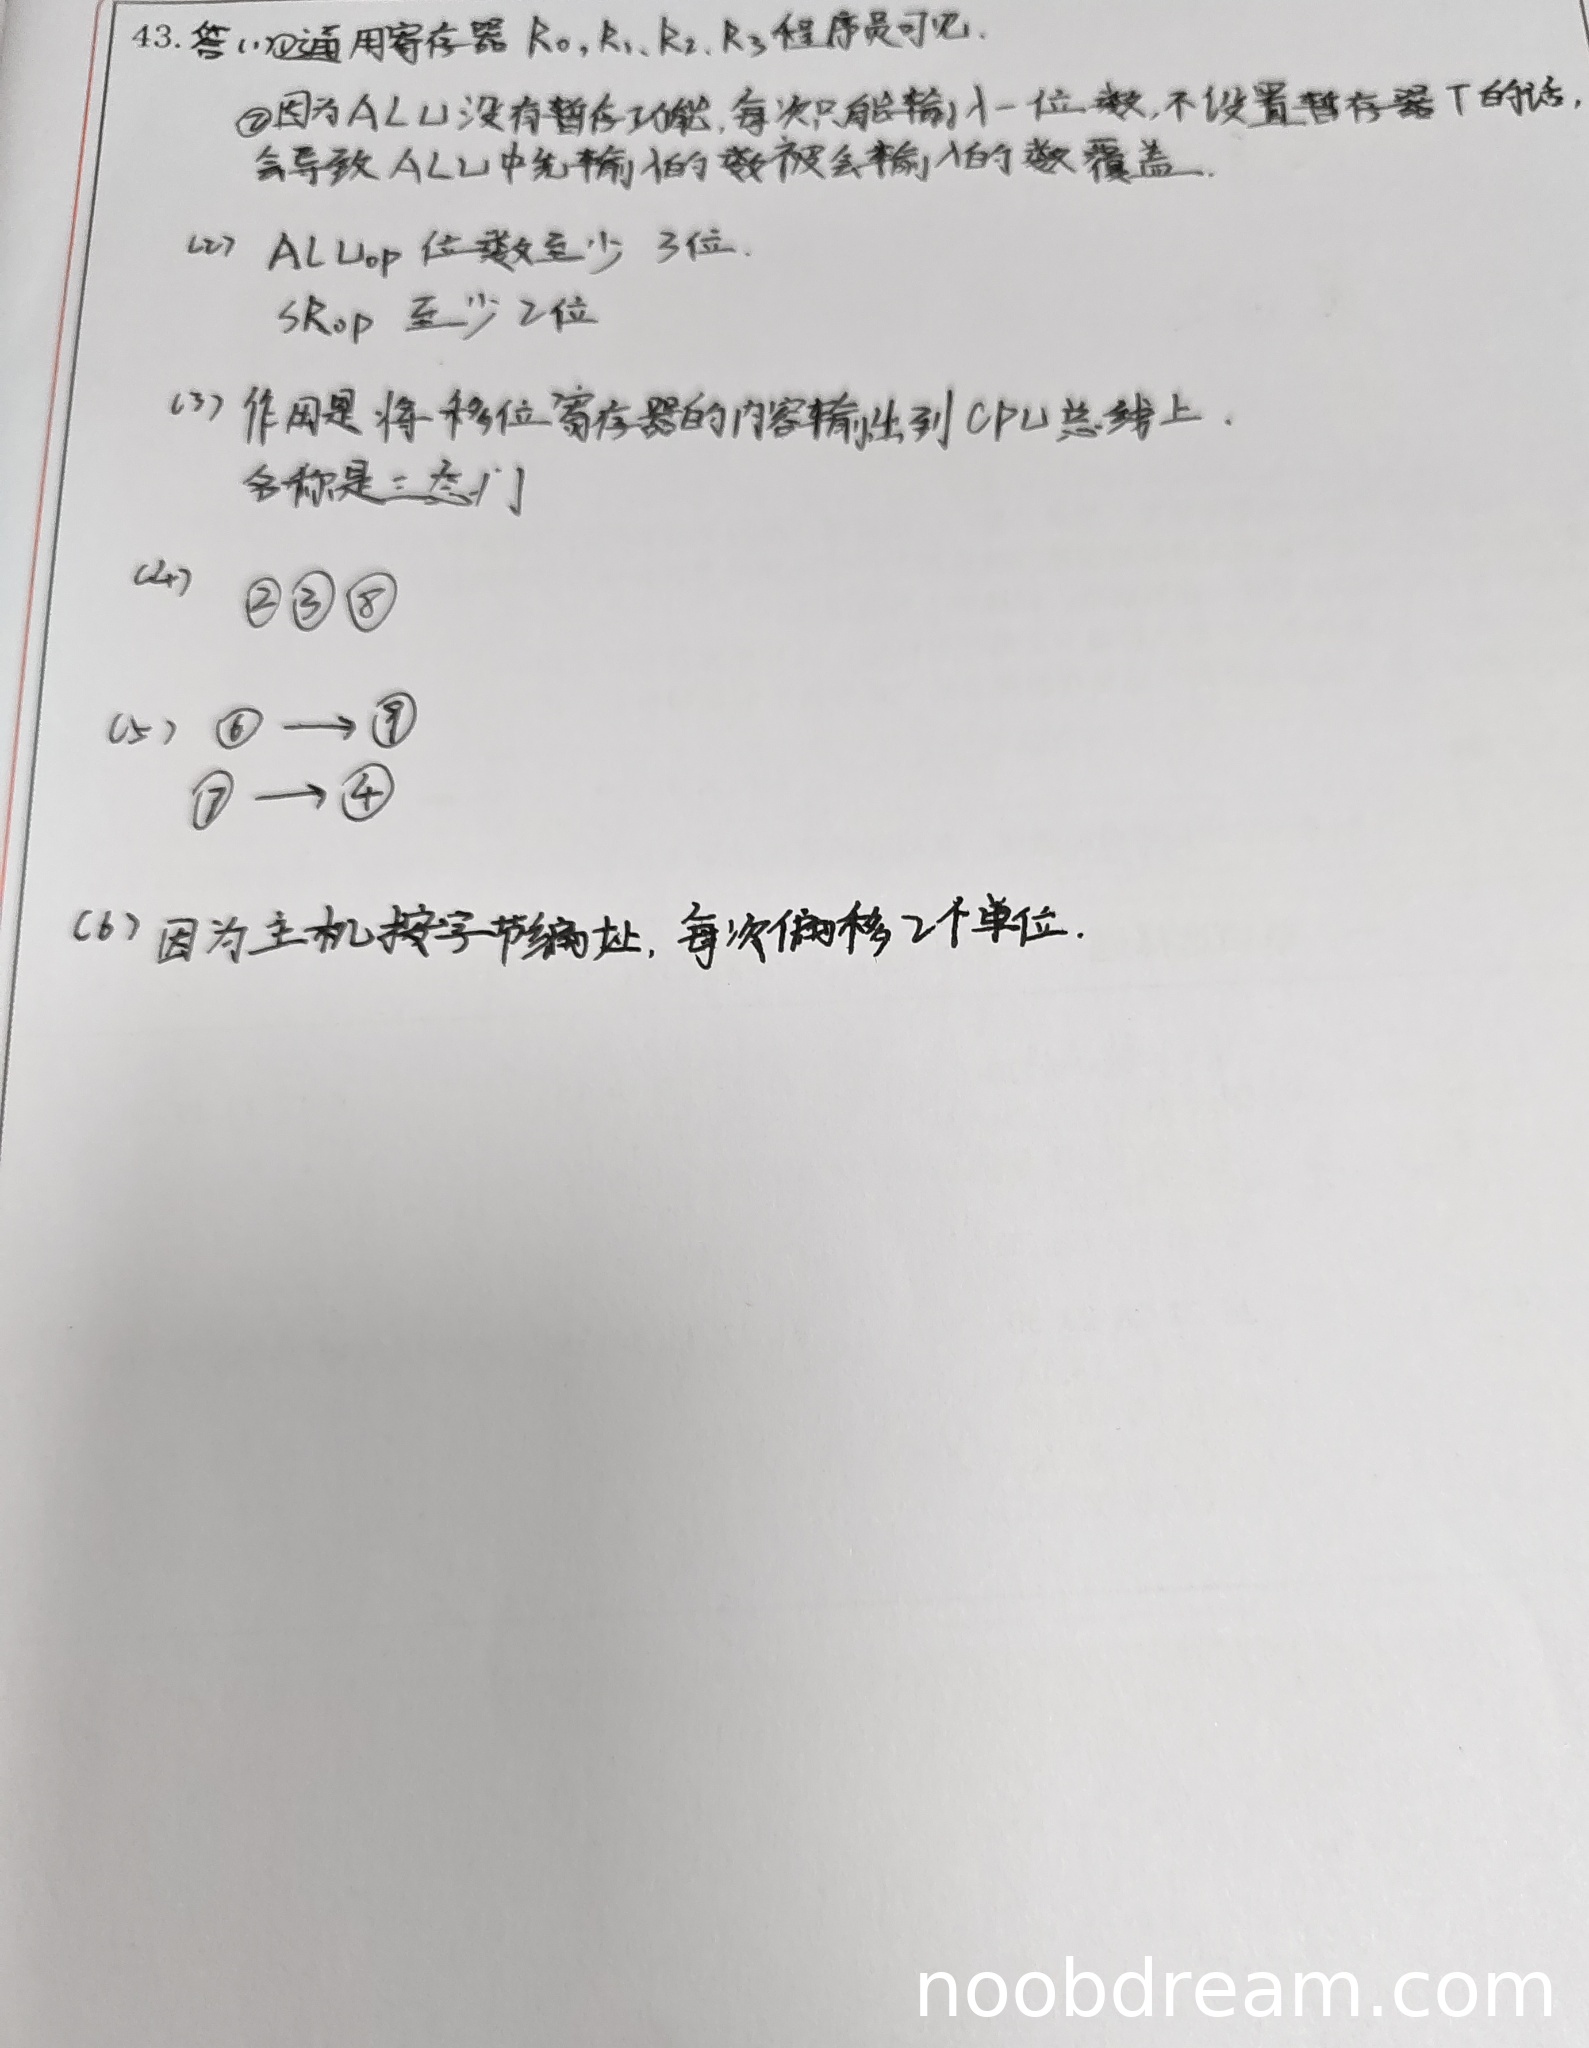 43. 答(1)①通用寄存器 R₀,R₁、R₂、R₃程序员可见.
②因为ALU没有暂存功能,每次只能输入一位数,不设置暂存器T的话,
会导致ALU中先输入的数被会输入的数覆盖.
(2) ALUop 位数至少 3位.
SRop 至少2位
(3) 作用是将移位寄存器的内容输出到CPU总线上.
名称是三态门
(4) ②③⑧
(5) ⑥ → ⑨
⑦ → ④
(6) 因为主机按字节编址,每次偏移2个单位.
noobdream.com